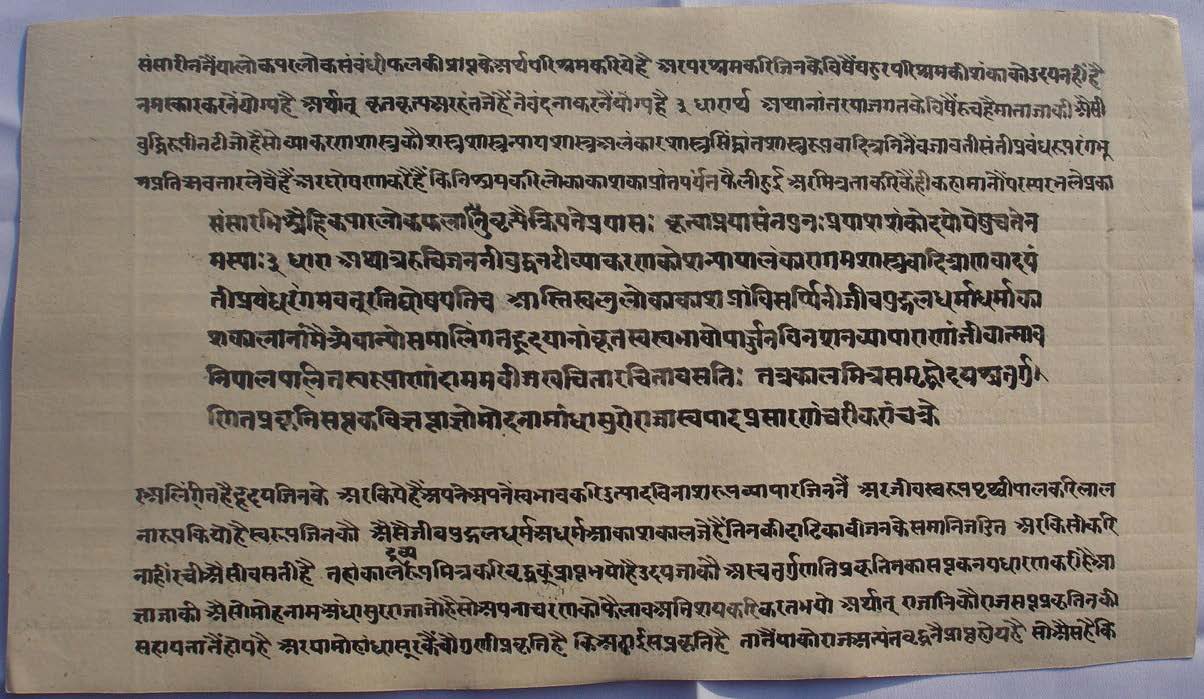 संसारीननैंयालोकपरलोकसंबंधीफलकीप्राप्तकेअर्थपरिश्रमकरियेहै अरपरश्रमकरिजिनकेविषैंबहुरपरिश्रमकीशंकाकोउदयनहींहै
नमस्कारकरनेंयोग्यहै अर्थात् कृतकृत्यअरहंतजेहैंतेवंदनाकरनैंयोग्यहै ३ धारार्थ अथानंतरयाजगतकेविषैंरुचहैमाताजाकीअैसी
बुद्धिरूपीनटीजोहैसोव्याकरणशास्त्रकोशशास्त्रन्यायशास्त्रअलंकारशास्त्रसिद्धांतशास्त्ररूपवादित्रतिनैंवजावतीसंतीप्रबंधरूपरंगभू
मप्रतिअवतारलेवैहैं अरघोषणाकरैहैं किनिश्चयकरिलोकाकाशकाप्रांतपर्यंतफैलीहुई अरमित्रताकरिकैहीकहामानौंपरस्परमलेप्रका
संसारभिश्चैहिकपारलोकफलाप्ति क्रियतेप्रयासः कृत्वाप्रयासंनपुनःप्रयाशशंकोदयोयेषुचतेन
मस्याः३ धारा अथात्ररुचिजननीबुद्धनटीव्याकरणकोशन्यायालंकारागमशास्त्रवादित्राणवादयं
तीप्रबंधरंगमवचतुरतिघोषयतिच अस्तिखलुलोकाकाशप्रांविसर्पिनीजीवपुद्गलधर्माधर्माका
शकालानांमैत्र्येवान्योसमालिंगनहृदयानांकृतस्वस्वभावोपार्जनविनशनव्यापाराणांजीवात्माव
निपालपालितस्वरूपाणांदाममवीजखचितारचितावसतिः तत्रकालमित्रसमृद्धोदयश्चतुर्गु
णितप्रकृतिसप्तकविज्ञप्ताज्ञोमोहनामांधासुरोराजास्वपादप्रसारणंचरीकरांचक्रे
रअलिंगितहैहृदयजिनके अरकियेहैंअपनेअपनेस्वभावकरिउत्पादविनाशरूपव्यापारजिननैं अरजीवस्वरूपपृथ्वीपालकरिलाल
नारूपकियोहैस्वरूपजिनकौ अैसैजीवपुद्गलधर्मअधर्मआकाशकालजेहैंतिनकीदाटिकावीजनकेसमानिजरित अरकिसीकरि
नाहींरचीअैसीवसतीहै तहाकाल मित्रकरिवृद्धकूंप्राप्तभयोहैउदयजाकौ अरचतुर्गुणतिप्रकृतिनकासप्तकनयधारणकरीहैआ
द्रव्य
ज्ञाजाकी अैसोमोहनामअंधासुरराजाजोहैसोअपनाचरणकोफैलावअतिशयकरिकरतभयो अर्थात् राजानिकौराजसप्तप्रकृतिनकी
सहायतातैंहोयहै अरयामोहांधासुरकैंचौगुणीप्रकृतिहै किअठ्ठाईसप्रकृतिहै तातैंयाकोराजअत्यंतवृद्धनैप्राप्तहोयहै सोअैसहैकि